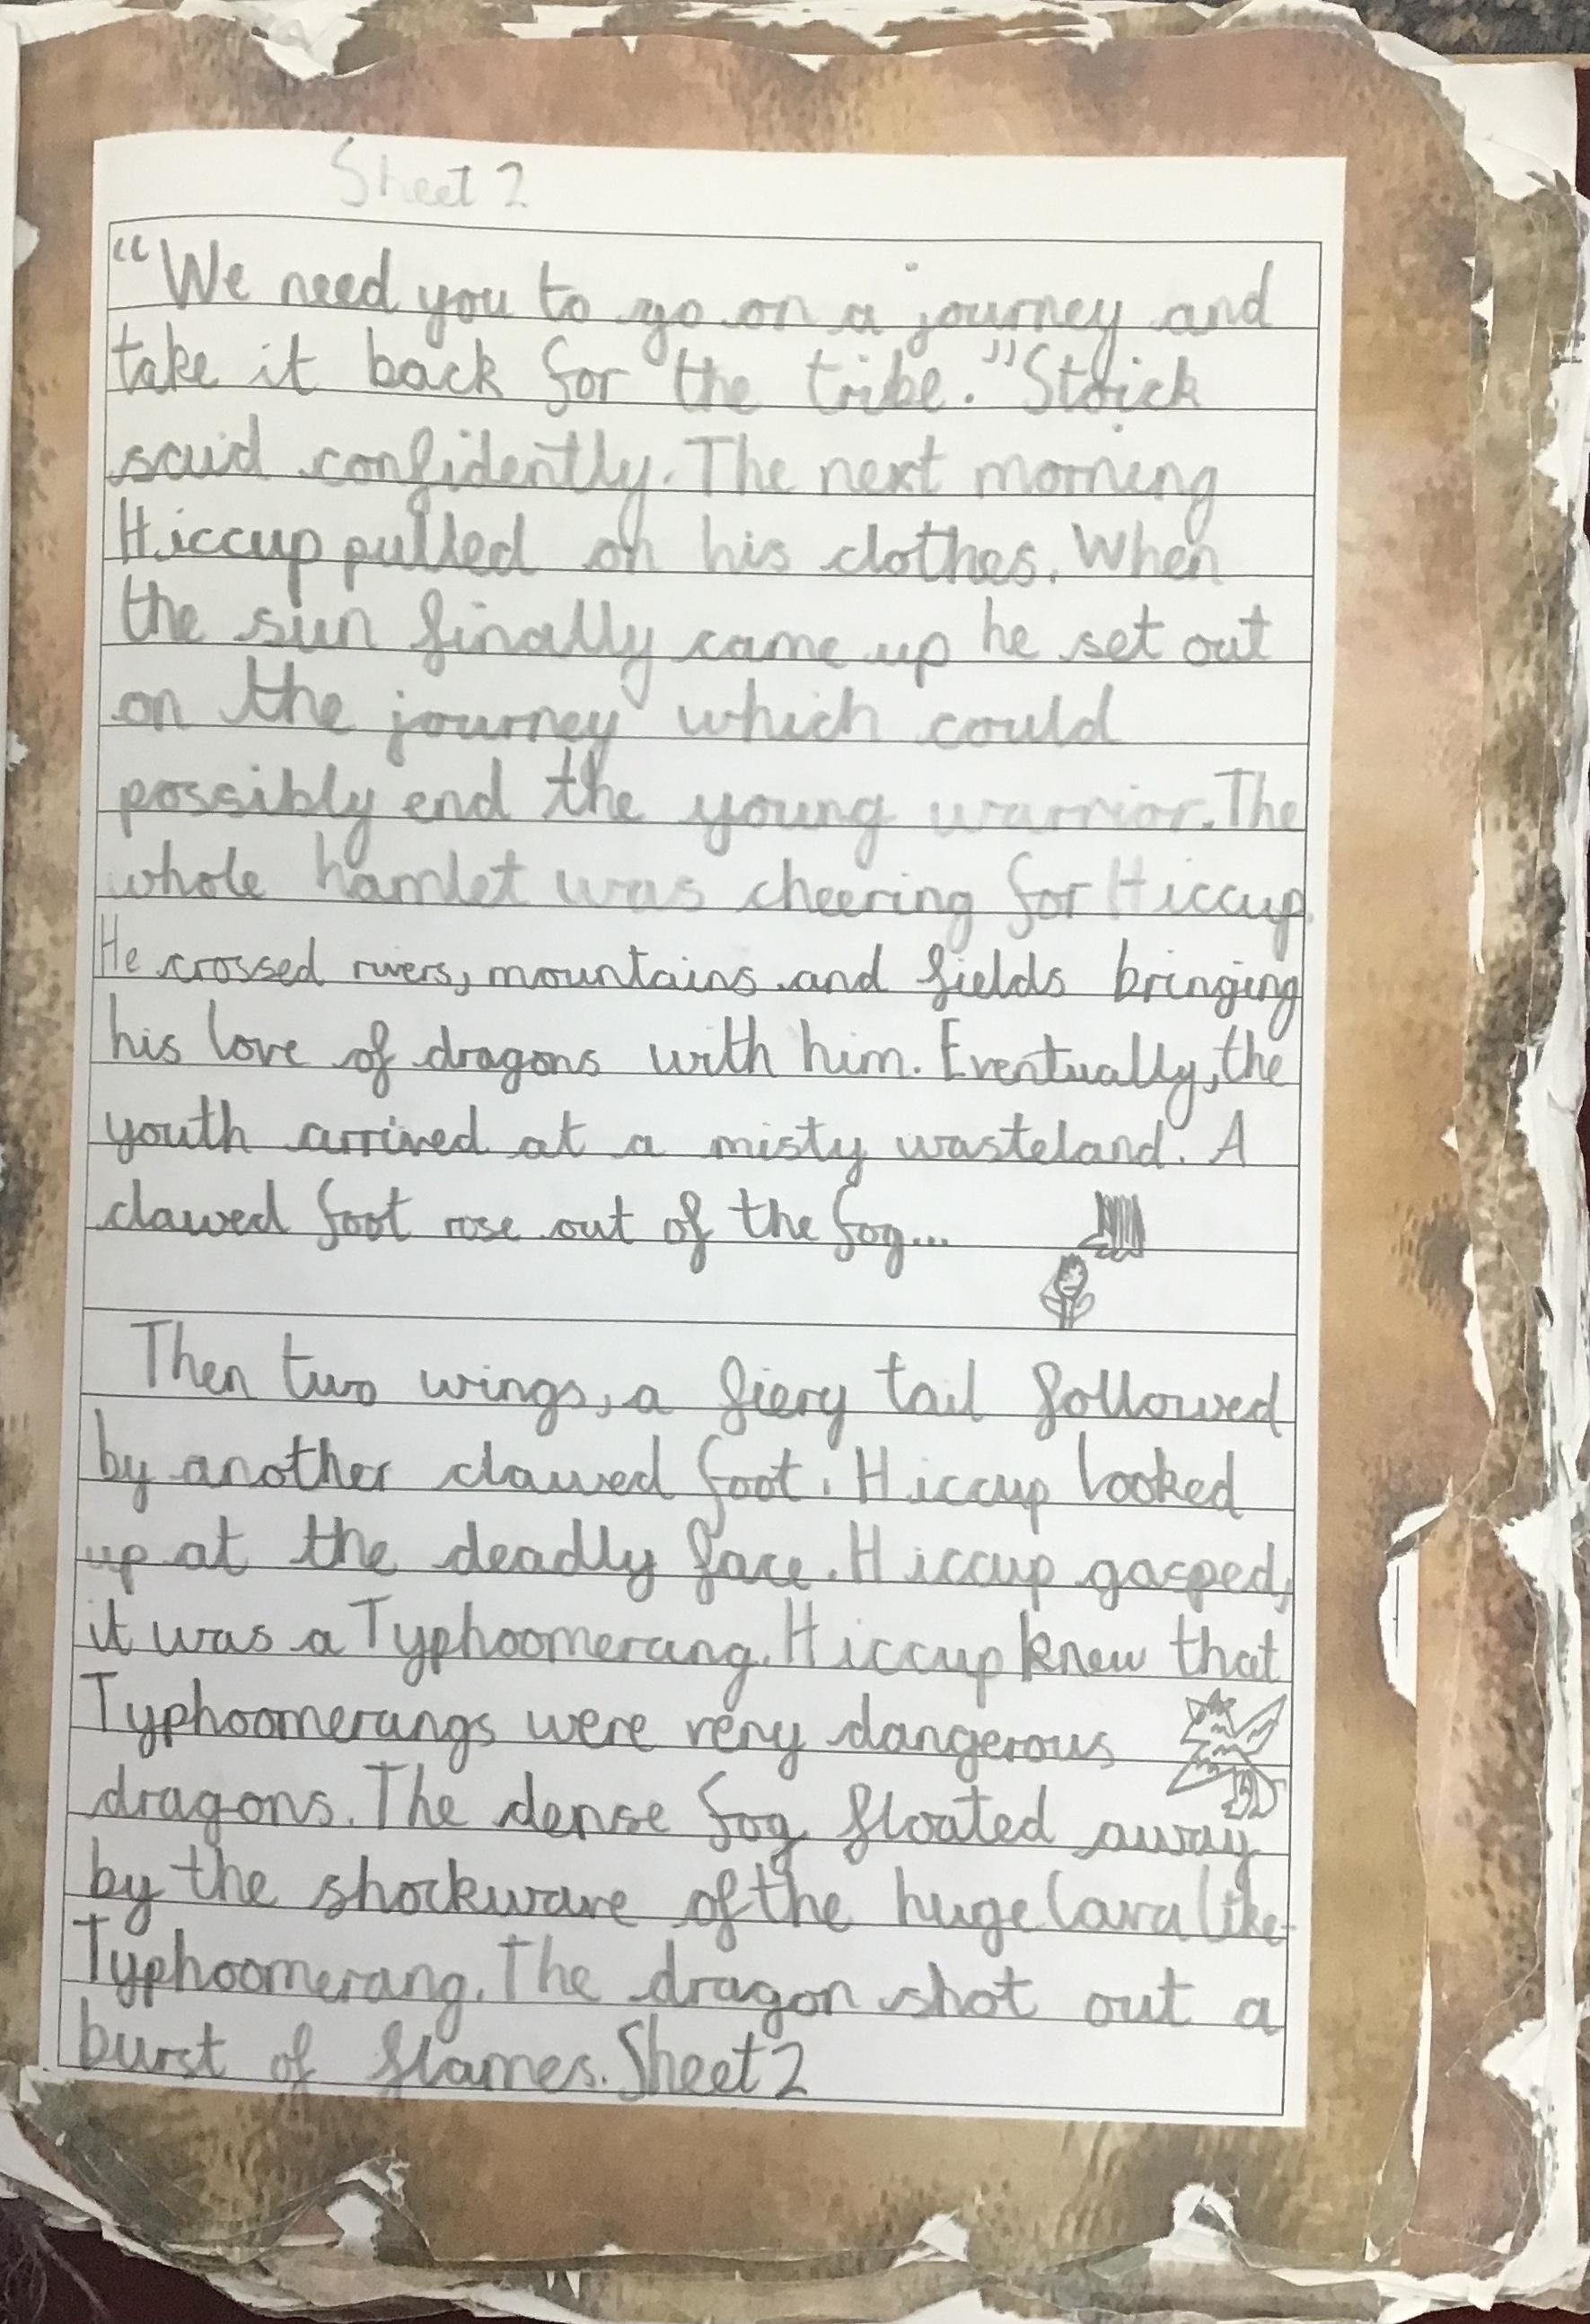 Sheet 2
"We need you to go on a journey and
take it back for the tribe." Stoick
said confidently. The next morning
Hiccup pulled on his clothes. When
the sun finally came up he set out
on the journey which could
possibly end the young warrior. The
whole hamlet was cheering for Hiccup.
He crossed rivers, mountains and fields bringing
his love of dragons with him. Eventually, the
youth arrived at a misty wasteland. A
clawed foot rose out of the fog...
Then two wings, a fiery tail followed
by another clawed foot. Hiccup looked
up at the deadly face. Hiccup gasped,
it was a Typhoomerang. Hiccup knew that
Typhoomerangs were very dangerous
dragons. The dense fog floated away
by the shockwave of the huge lava like
Typhoomerang. The dragon shot out a
burst of flames. Sheet 2